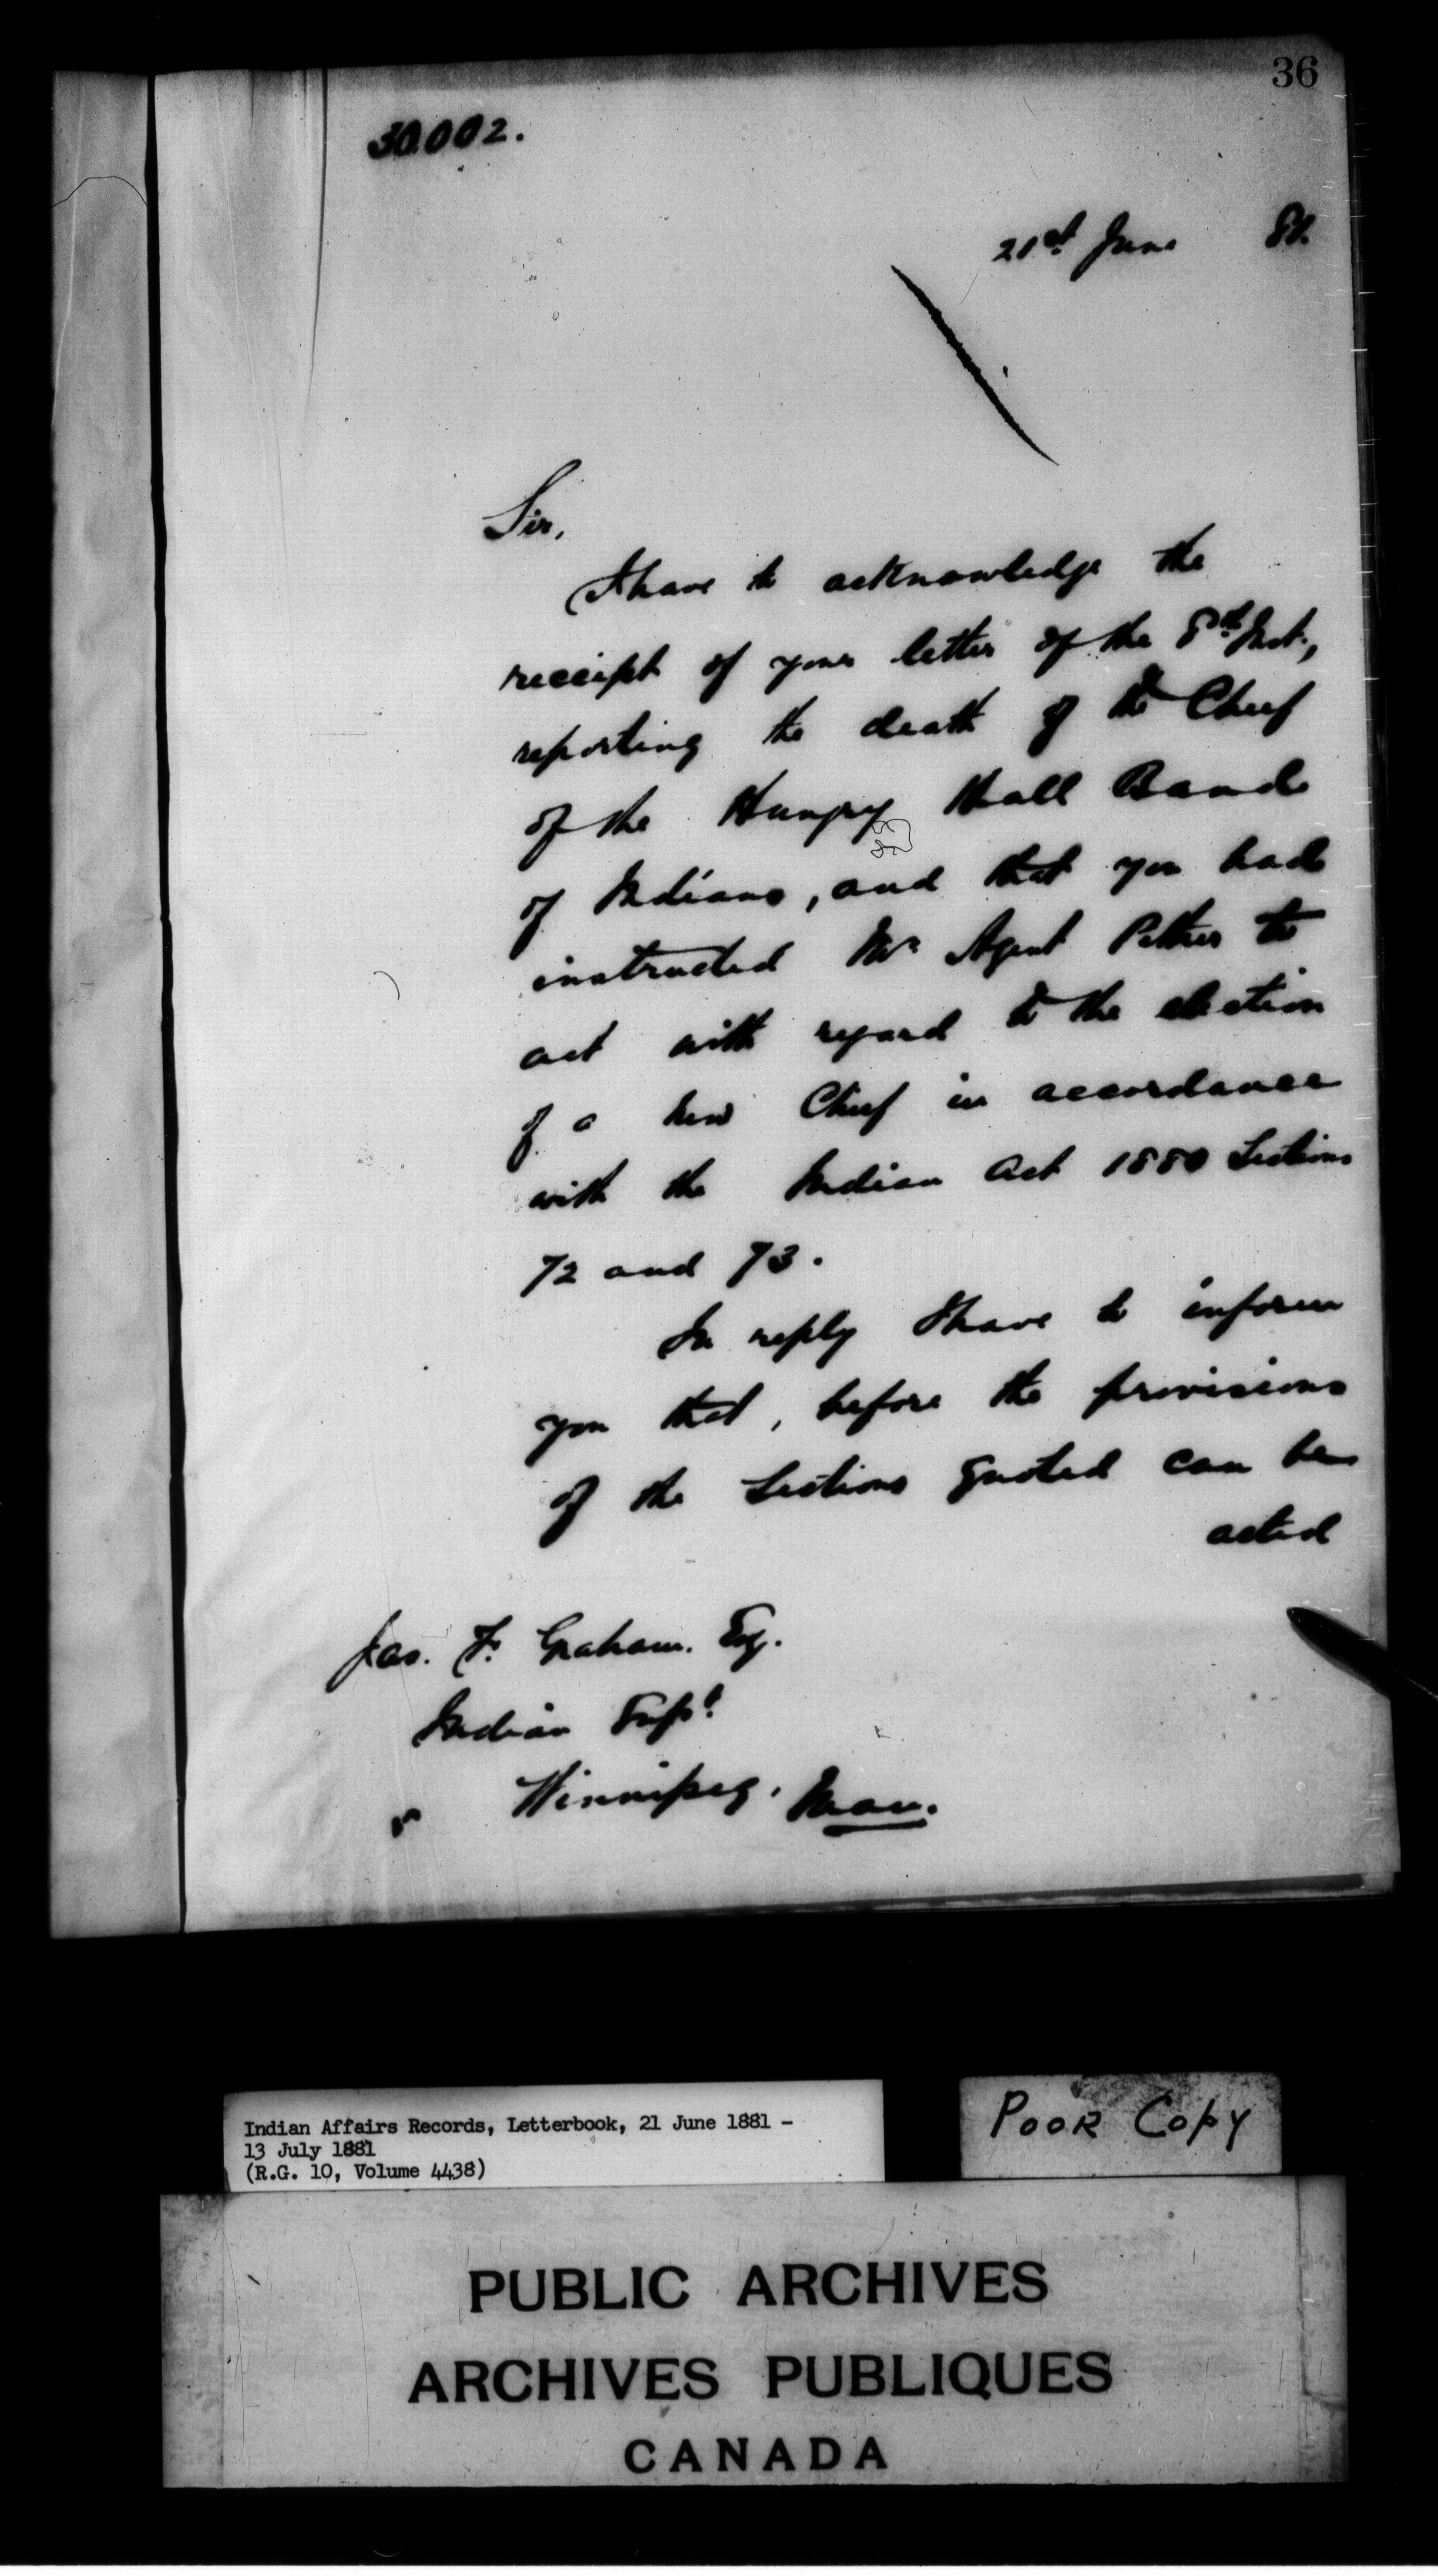 36
30.002.
21st June 81.
Sir,
I have to acknowledge the
receipt of your letter of the 8th Inst.,
reporting the death of the Chief
of the Hungry Hall Band
of Indians, and that you had
instructed Mr. Agent Pither to
act with regard to the election
of a new Chief in accordance
with the Indian Act 1880 Sections
72 and 73.
In reply I have to inform
you that, before the provisions
of the Sections quoted can be
acted
Jas. F. Graham. Esq.
Indian Supt.
Winnipeg, Man.
Indian Affairs Records, Letterbook, 21 June 1881 -
13 July 1881
(R.G. 10, Volume 4438)
POOR COPY
PUBLIC ARCHIVES
ARCHIVES PUBLIQUES
CANADA